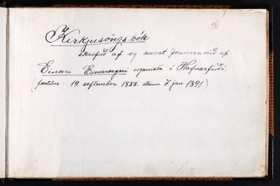 Kirkjusöngs bók
skrifuð af og samt frumsamið af
Einari Einarssyni organista í Hafnarfirði.
fæddur 19 september 1888. dáinn 7 jan 1891)